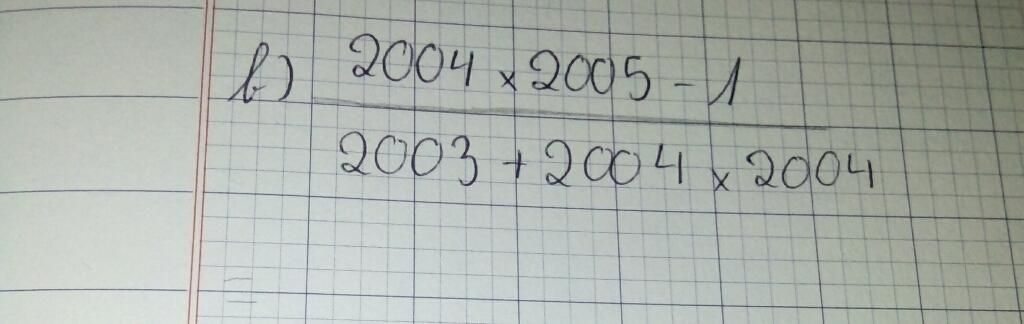 b) 2004 × 2005 - 1
2003 + 2004 × 2004
=